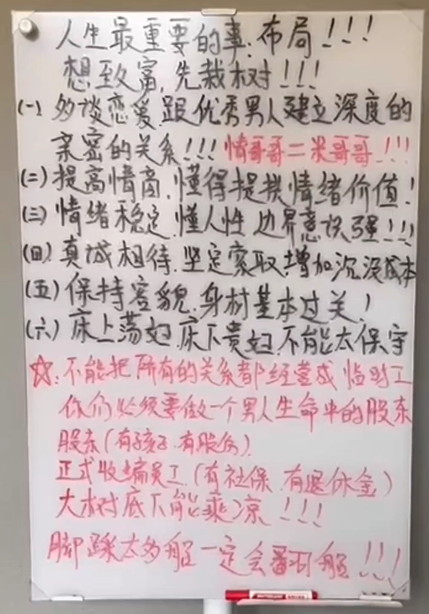 人生最重要的事:布局!!!
想致富,先栽树!!!
(一) 多谈恋爱,跟优秀男人建立深度的
亲密的关系!!! 情哥哥=米哥哥!!!
(二) 提高情商,懂得提供情绪价值!
(三) 情绪稳定,懂人性,边界意识强!!!
(四) 真诚相待,坚定索取,增加沉没成本
(五) 保持容貌,身材基本过关!
(六) 床上荡妇,床下贵妇,不能太保守
☆:不能把所有的关系都经营成临时工
你们必须要做一个男人生命中的股东
股东(有孩子,有股份)
正式收编员工(有社保,有退休金)
大树底下能乘凉!!!
脚踩太多船一定会翻船!!!